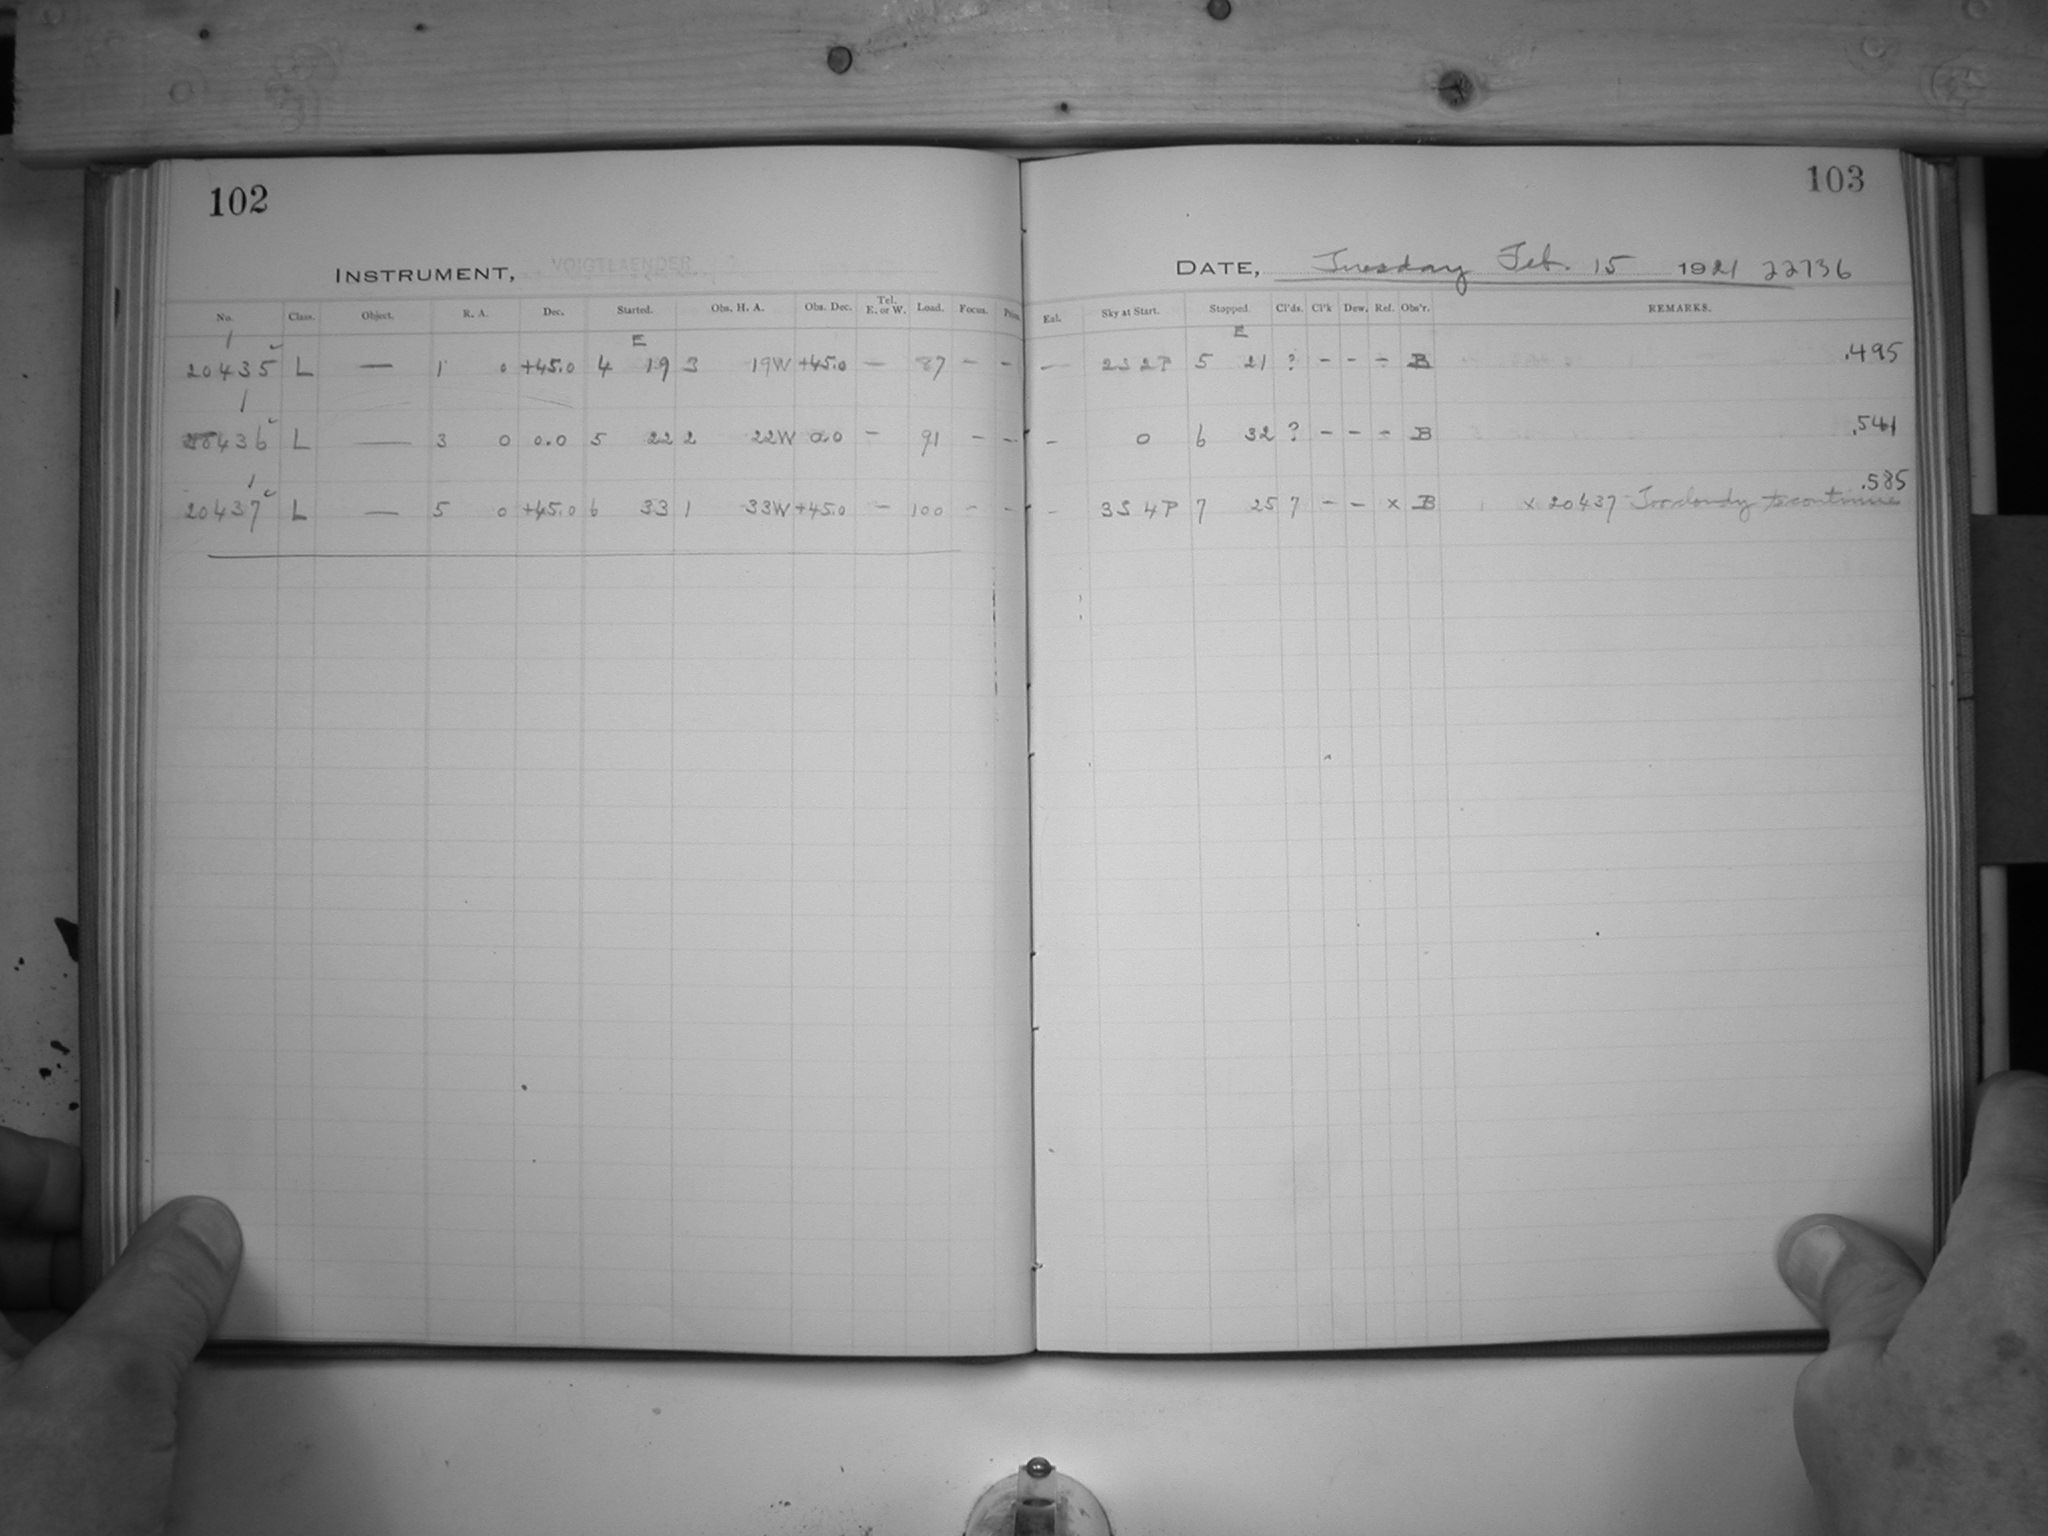 102
INSTRUMENT, VOIGTLAENDER
No. Class. Object. R. A. Dec. Started. Obs. H. A. Obs. Dec. Tel. E. or W. Load. Focus. Prism.
1 E
20435 L — 1 0 +45.0 4 19 3 19W +45.0 — 87 - -
1
20436 L — 3 0 0.0 5 22 2 22W 0.0 - 91 - -
1
20437 L — 5 0 +45.0 6 33 1 33W +45.0 - 100 - -
103
DATE, Tuesday Feb. 15 1921 22736
Eal. Sky at Start. Stopped. Cl'ds. Cl'k Dew. Ref. Obs'r. REMARKS.
E
— 2S 2P 5 21 ? - - - B .495
- 0 6 32 ? - - - B .541
- 3S 4P 7 25 7 - - x B x 20437 Too cloudy to continue .585